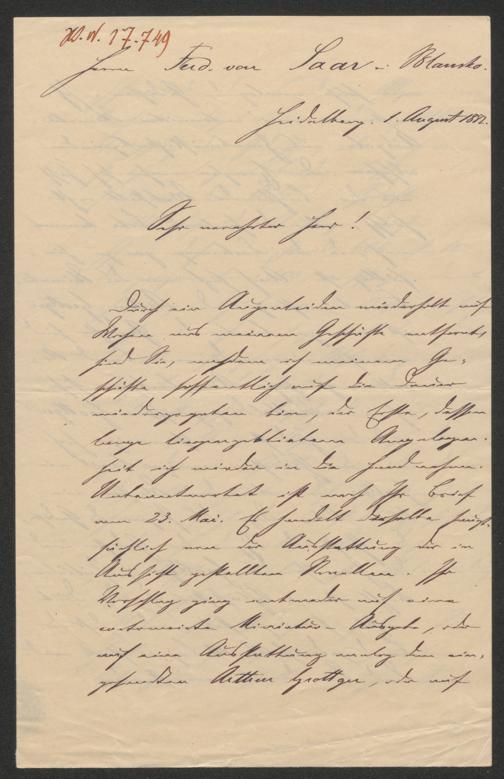 W. N. 17.749
Herrn Ferd. von Saar in Blansko.
Heidelberg. 1. August 1882.
Sehr verehrter Herr!
Durch ein Augenleiden wiederholt auf
Wochen aus meinem Geschäfte entfernt,
sind Sie, nachdem ich meinem Ge-
schäfte hoffentlich auf die Dauer
wiedergegeben bin, der Erste, dessen
lange liegengebliebene Angelegen-
heit ich wieder in die Hand nehme.
Unbeantwortet ist noch Ihr Brief
vom 23. Mai. Es handelt derselbe haupt-
sächlich von der Ausstattung der in
Aussicht gestellten Novellen. Ihr
Vorschlag ging entweder auf eine
Miniatur-Ausgabe, oder
auf eine Ausstattung analog dem ein-
gesandten Arthur Grottger, oder auf